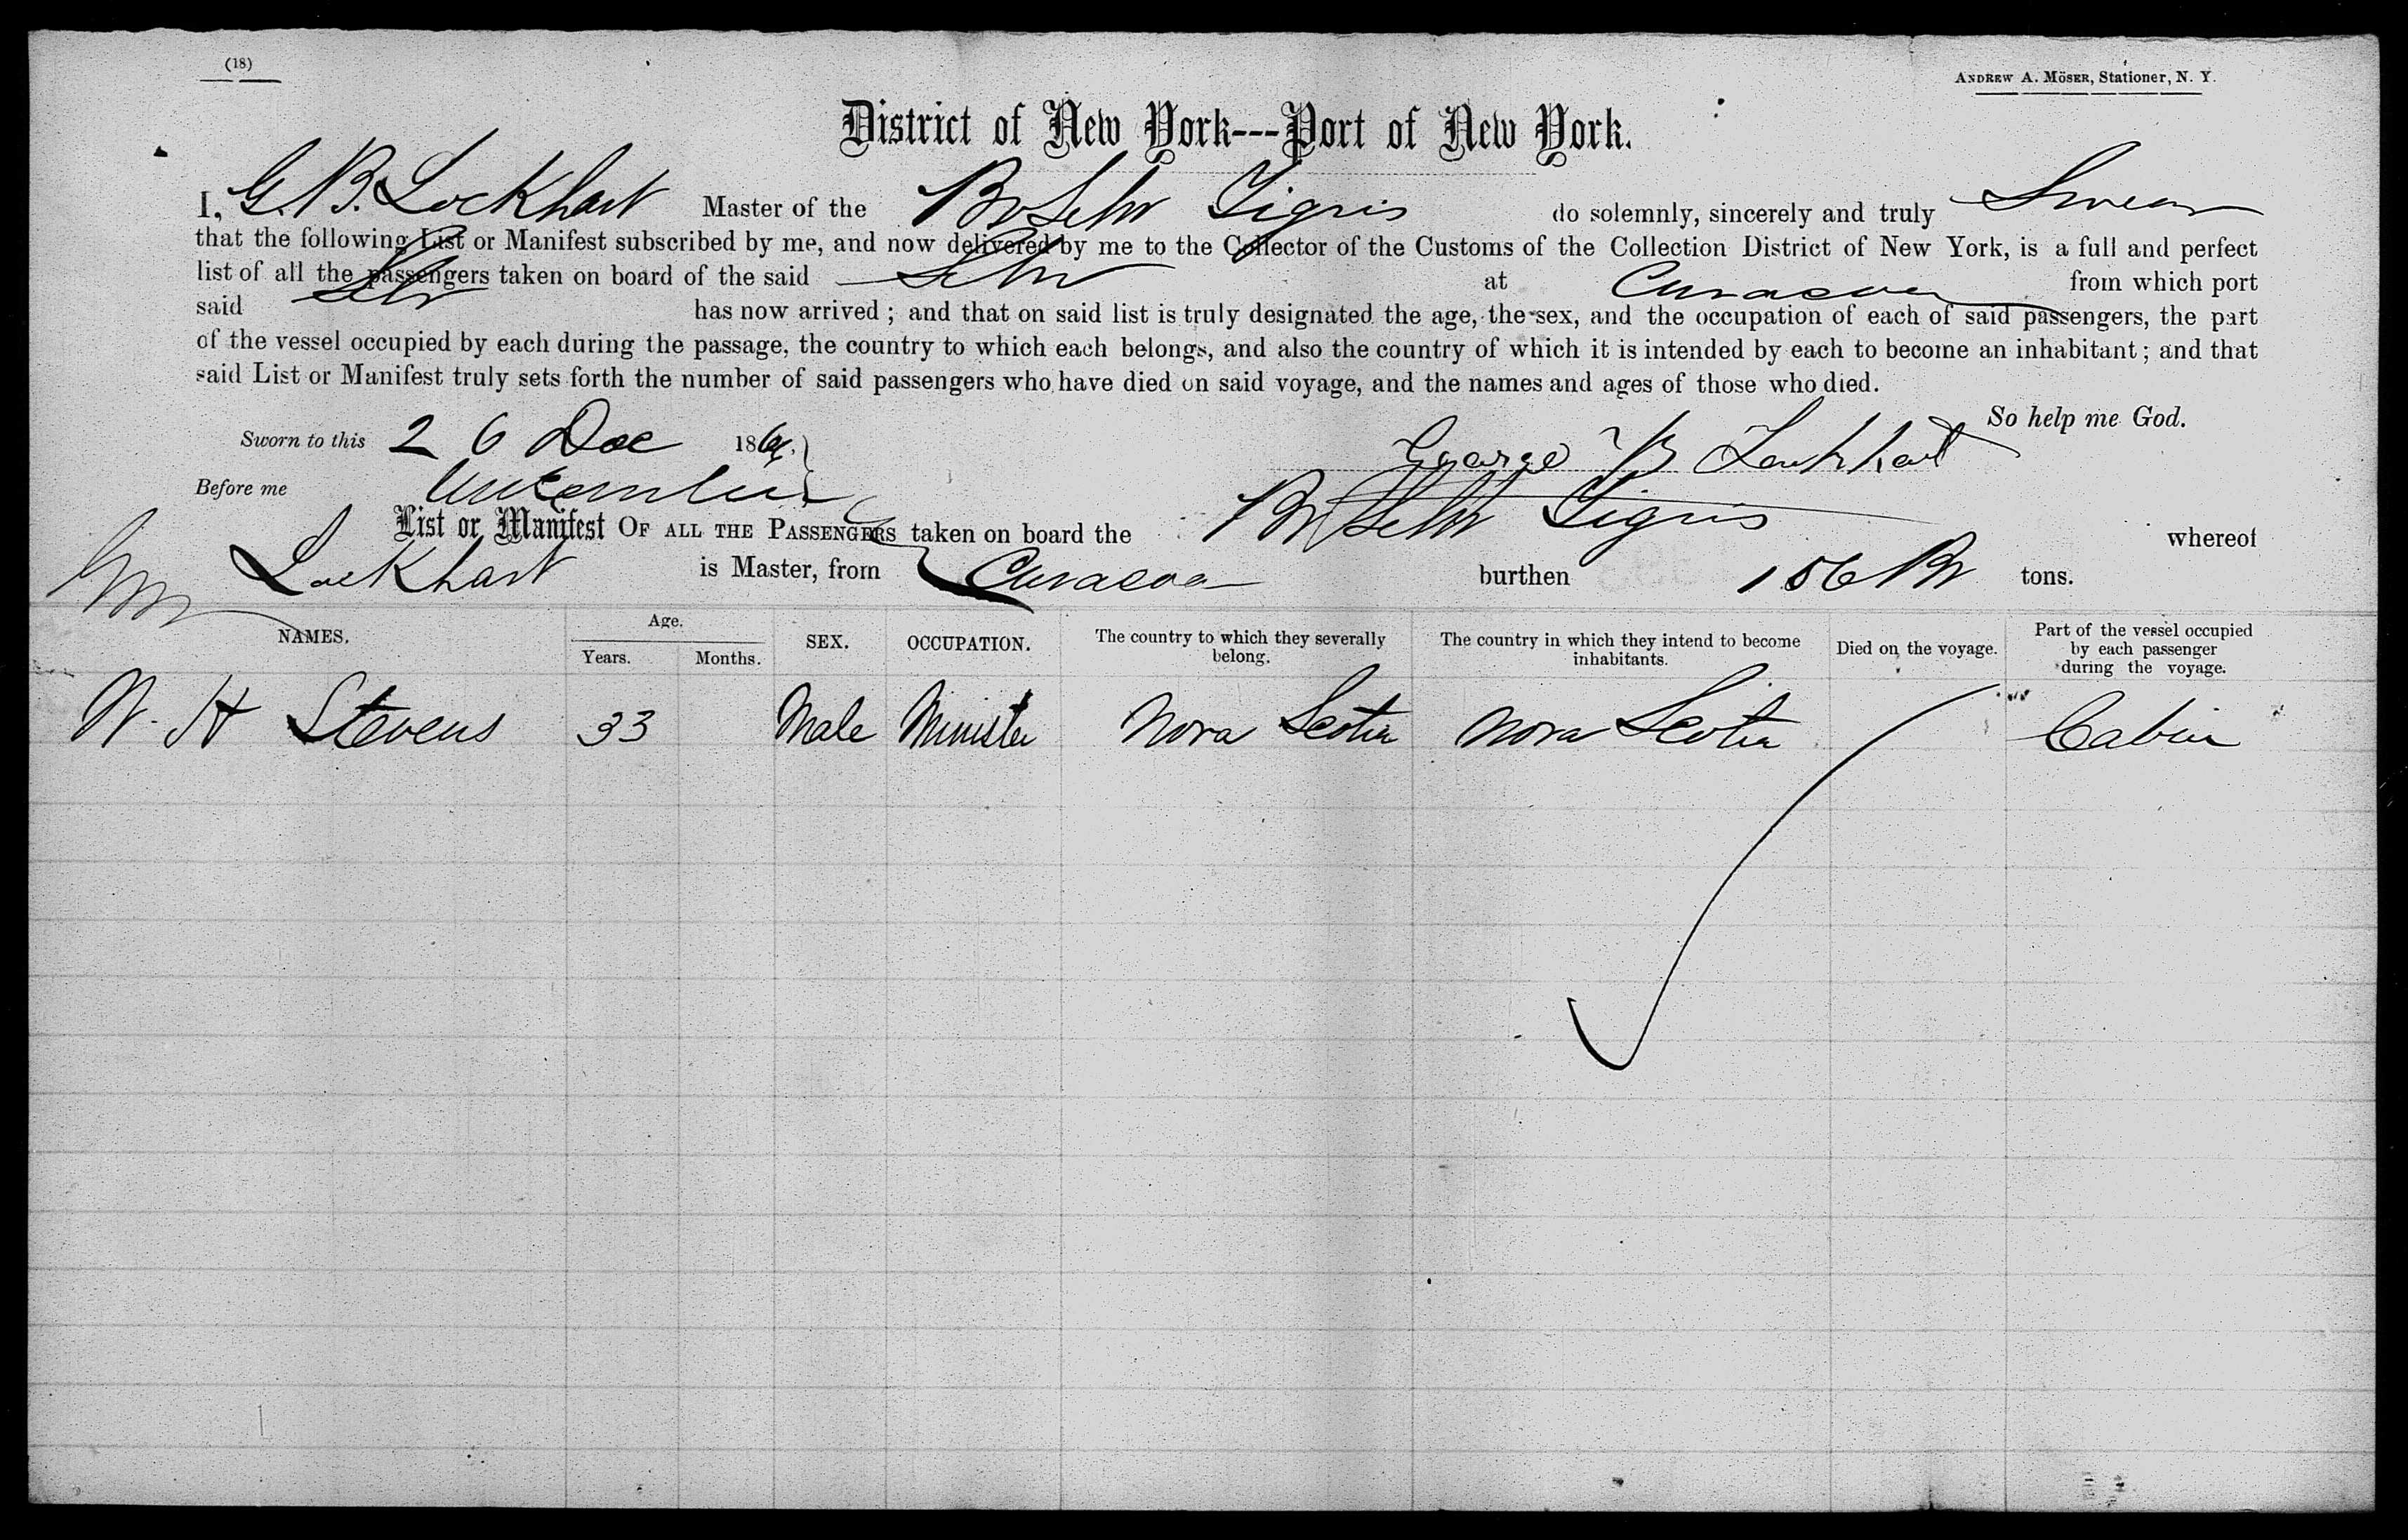 (18)
ANDREW A. MÖSER, Stationer, N. Y.
District of New York---Port of New York.
I, G. B. Lockhart Master of the Br Schr Tigris do solemnly, sincerely and truly Swear
that the following List or Manifest subscribed by me, and now delivered by me to the Collector of the Customs of the Collection District of New York, is a full and perfect
list of all the passengers taken on board of the said Schr at Curacoa from which port
said Schr has now arrived; and that on said list is truly designated the age, the sex, and the occupation of each of said passengers, the part
of the vessel occupied by each during the passage, the country to which each belongs, and also the country of which it is intended by each to become an inhabitant; and that
said List or Manifest truly sets forth the number of said passengers who have died on said voyage, and the names and ages of those who died.
So help me God.
Sworn to this 26 Dec 186
George B Lockhart
Before me
List or Manifest OF ALL THE PASSENGERS taken on board the Br Schr Tigris whereof
Lockhart is Master, from Curacoa burthen 156 tons.
NAMES. Age. Years. Months. SEX. OCCUPATION. The country to which they severally belong. The country in which they intend to become inhabitants. Died on the voyage. Part of the vessel occupied by each passenger during the voyage.
W. H Stevens 33 Male Minister Nova Scotia Nova Scotia Cabin